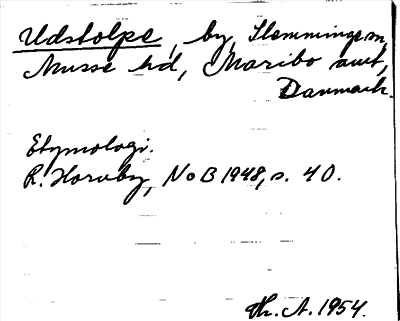 Udstolpe, by, Flemminge sn,
Musse hd, Maribo amt,
Danmark.
Etymologi.
R. Hornby, NoB 1948, s. 40.
Th. A. 1954.